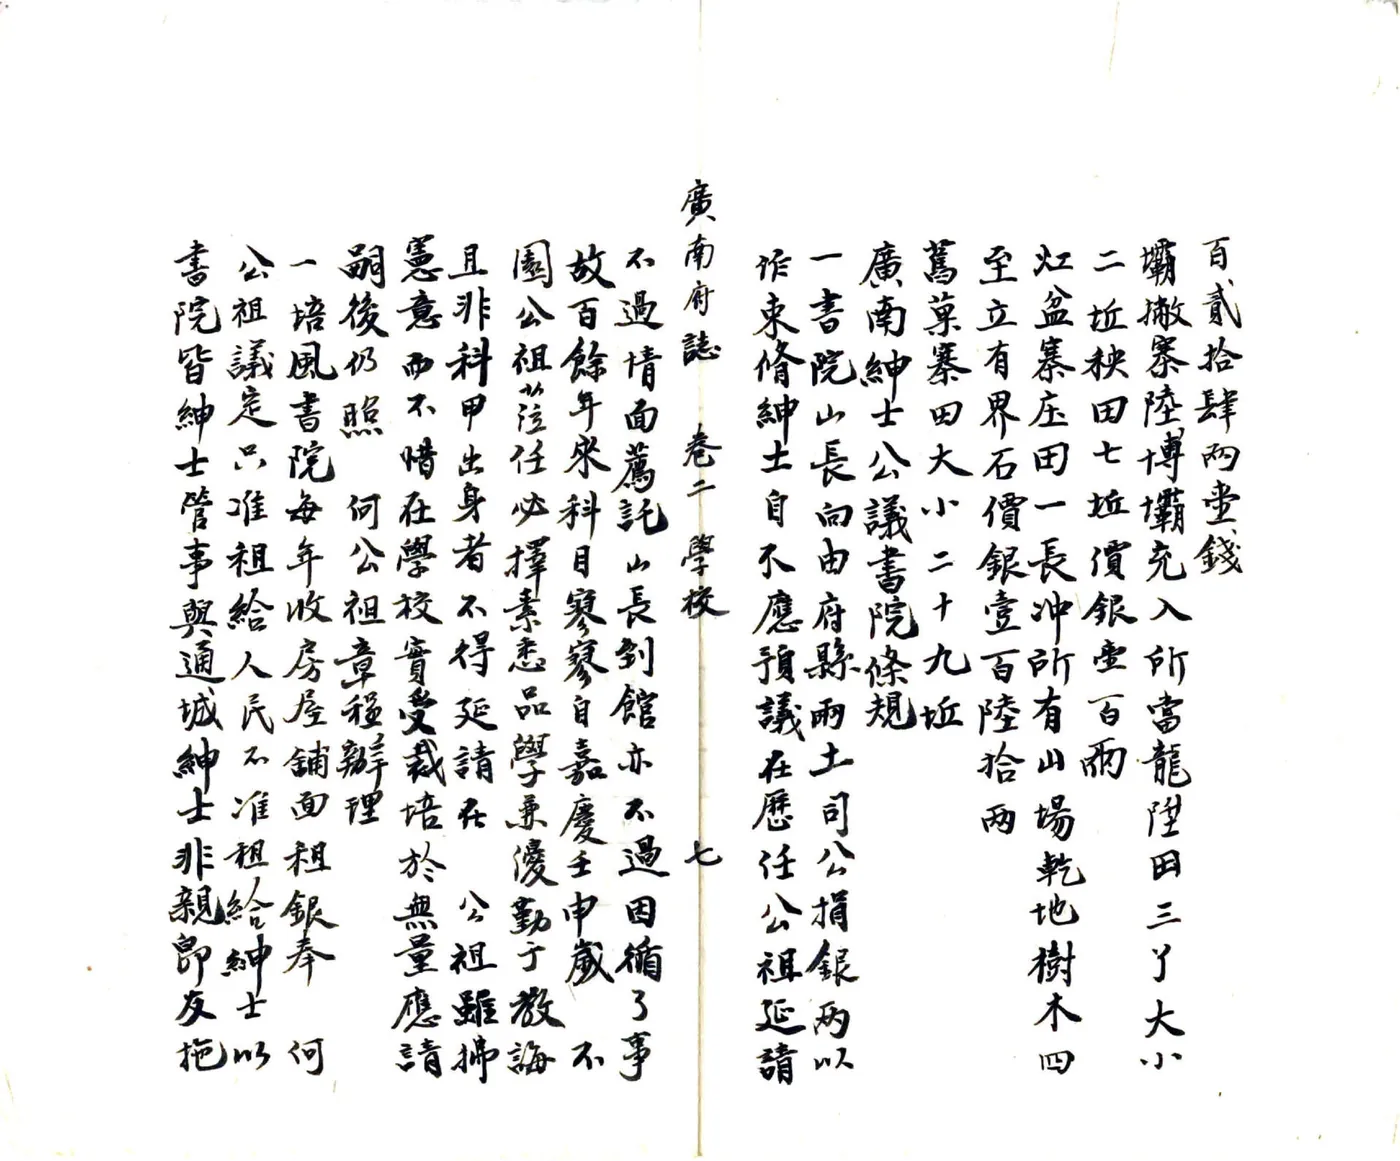 百貳拾肆兩壹錢
壩撇寨陸博壩充入所當龍陞田三丫大小
二坵秧田七坵價銀壹百兩
灴盆寨庄田一長冲所有山場乾地樹木四
至立有界石價銀壹百陸拾兩
舊菓寨田大小二十九坵
廣南紳士公議書院條規
一書院山長向由府縣兩土司公捐銀兩以
作束脩紳士自不應預議在歷任公祖延請
廣南府誌 卷二 學校 七
不過情面薦託山長到館亦不過因循了事
故百餘年來科目寥寥自嘉慶壬申歲 不
園公祖蒞任必擇素悉品學兼優勤于教誨
且非科甲出身者不得延請在 公祖雖掃
憲意而不惜在學校實受裁培於無量應請
嗣後仍照 何公祖章程辦理
一培風書院每年收房屋舖面租銀奉 何
公祖議定只准租給人民不准租給紳士以
書院皆紳士管事與通城紳士非親即友拖